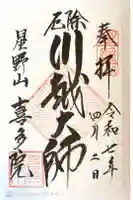 奉拝
令和七年
四月二日
厄除
川越大師
星野山
喜多院